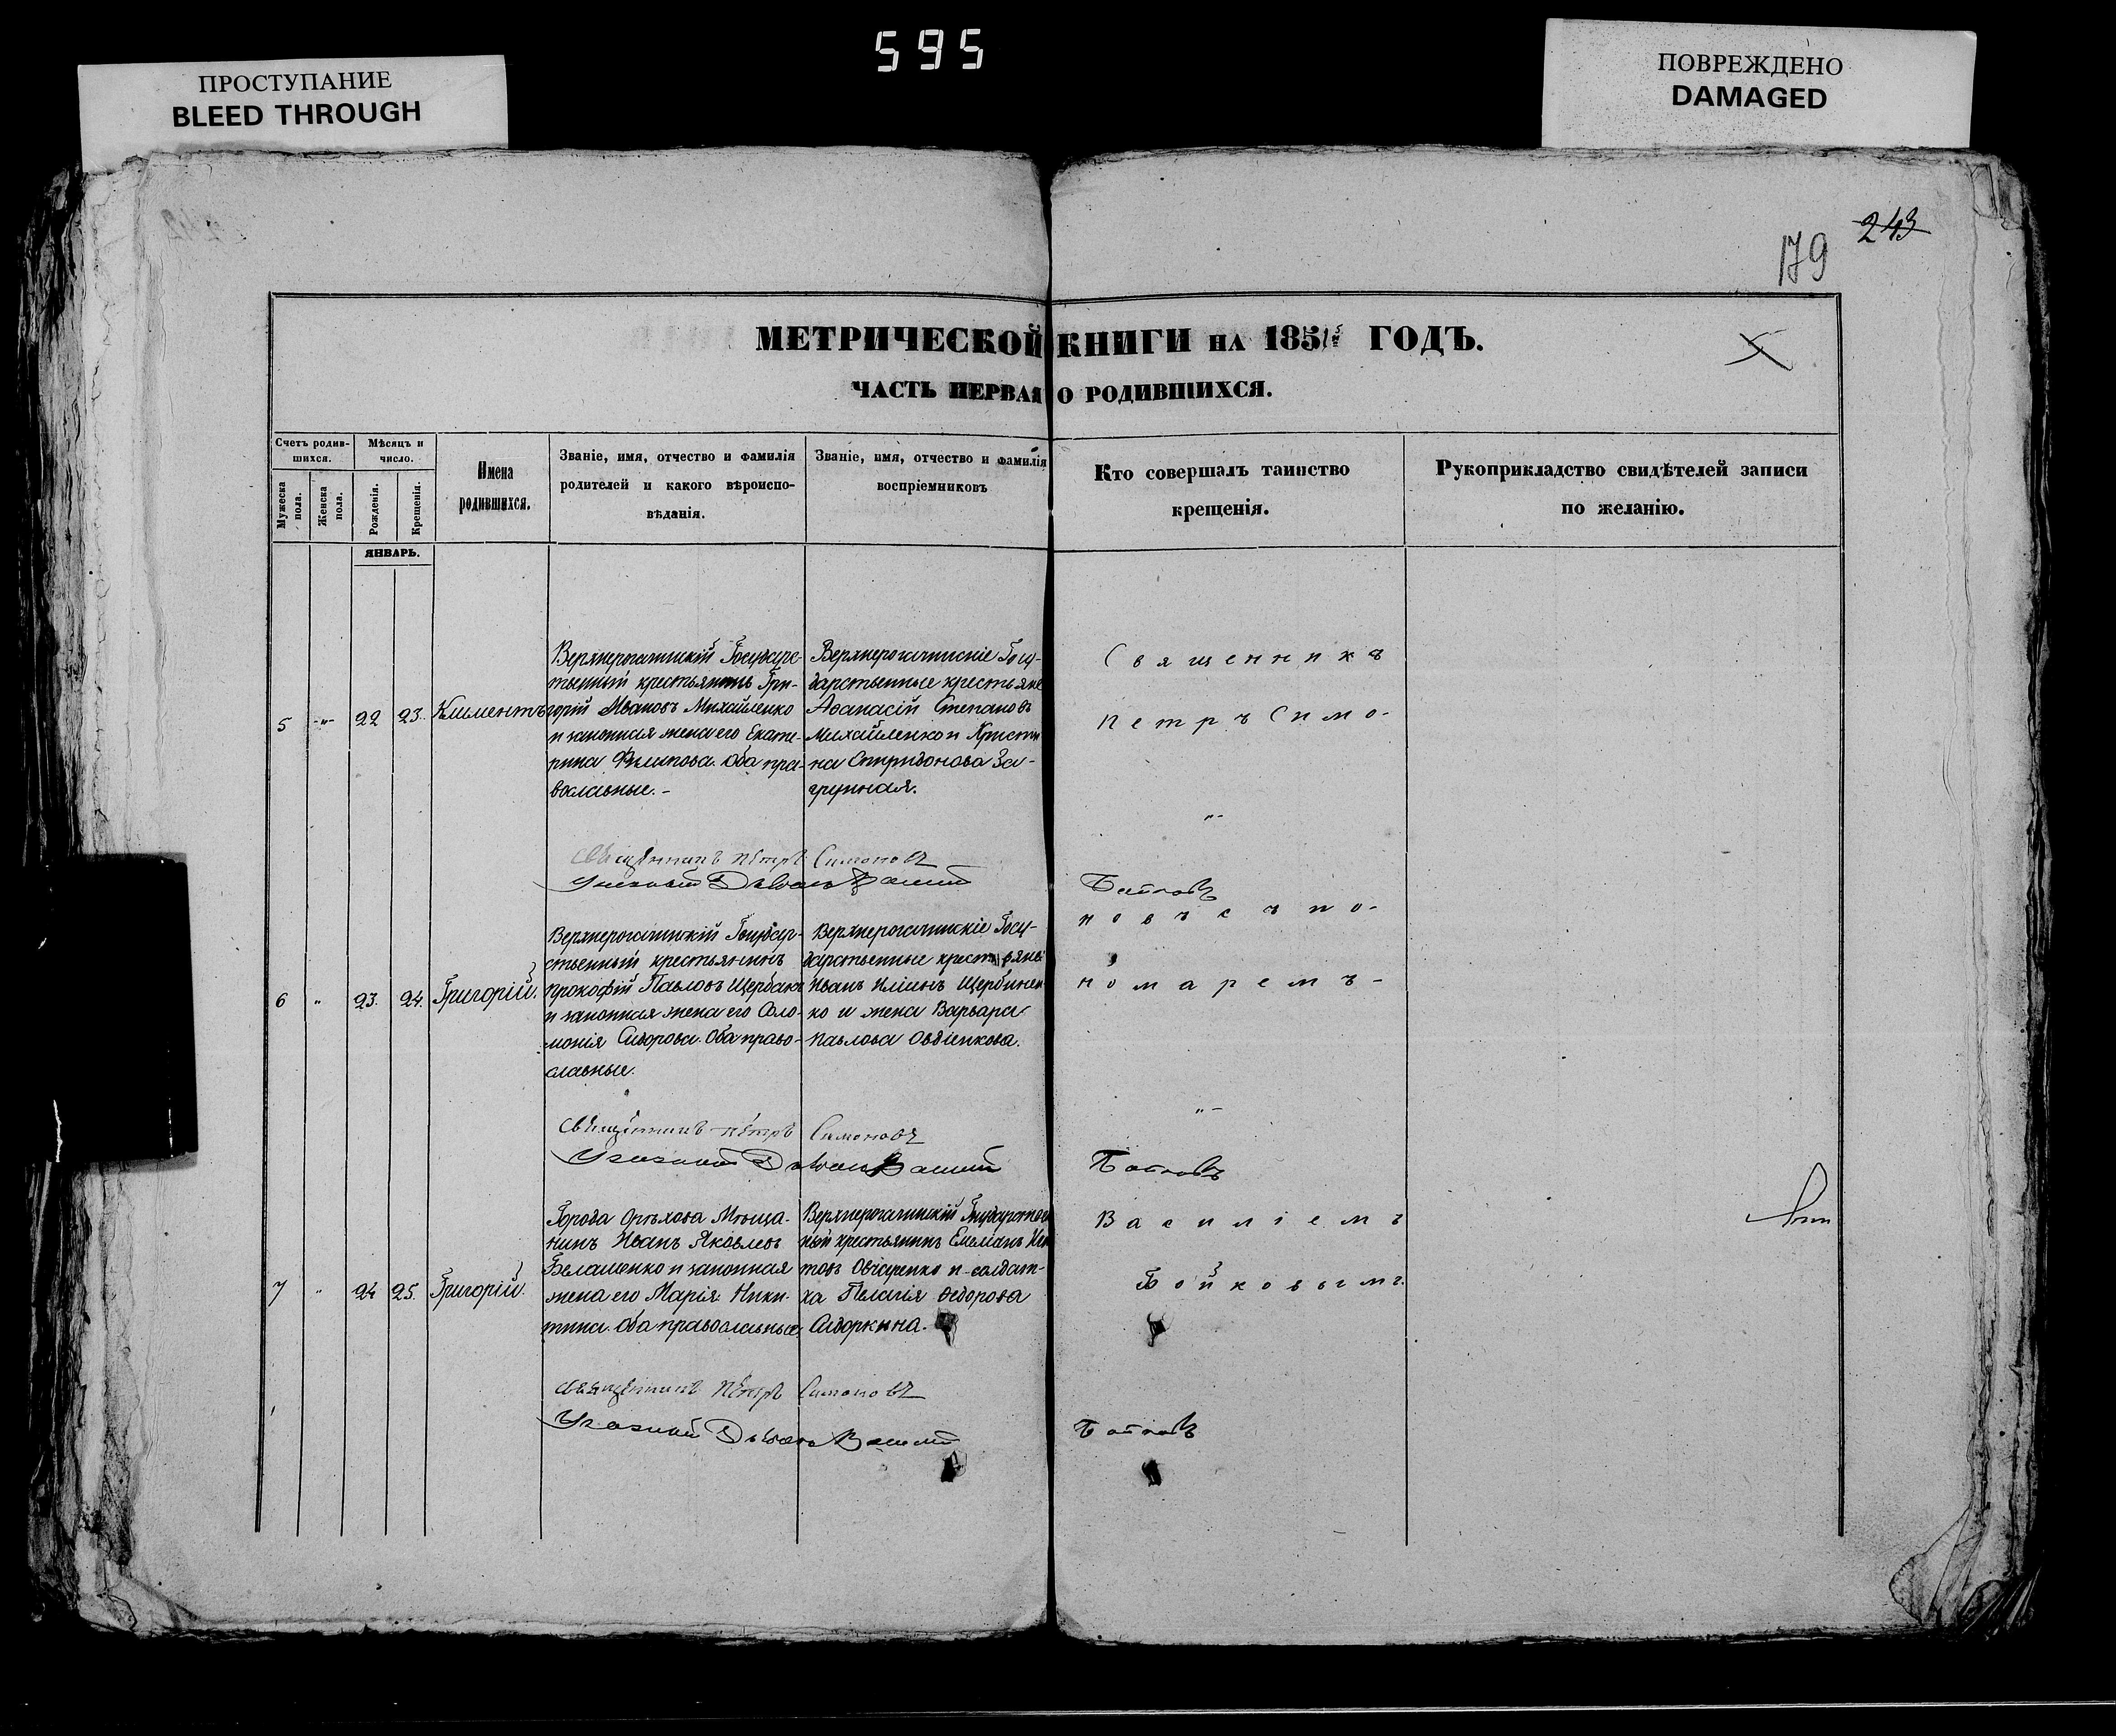 595
ПРОСТУПАНИЕ
BLEED THROUGH
ПОВРЕЖДЕНО
DAMAGED
243
179
МЕТРИЧЕСКОЙ КНИГИ НА 185 ГОДЪ.
ЧАСТЬ ПЕРВАЯ О РОДИВШИХСЯ.
Счетъ родив-
шихся.
Мужеска пола.
Женска пола.
Мѣсяцъ и
число.
Рожденія.
Крещенія.
Имена
родившихся.
Званіе, имя, отчество и фамилія
родителей и какого вѣроиспо-
вѣданія.
Званіе, имя, отчество и фамилія
воспріемниковъ
Кто совершалъ таинство
крещенія.
Рукоприкладство свидѣтелей записи
по желанію.
ЯНВАРЬ.
5 -"- 22 23. Климентъ
Верхнерогачикскій Государс-
твенный крестьянинъ Гри-
горій Ивановъ Михайленко
и законная жена его Екате-
рина Филипова. Оба пра-
вославные.-
Верхнерогачикскіе Госу-
дарственные крестьяне
Аѳанасій Степановъ
Михайленко и Христи
на Спиридонова За-
грунная.
Священникъ
Петръ Симо-
"-
Священникъ Петръ Симоновъ
Указный Дьячекъ Василій Бойковъ
новъ съ по-
6 " 23. 24. Григорій.
Верхнерогачикскій Государ-
ственный крестьянинъ
Прокофій Павловъ Щербина
и законная жена его Соло-
монія Сидорова. Оба право-
славные.
Верхнерогачикскіе Госу-
дарственные крестьяне
Иванъ Иліинъ Щербинен
ко и жена Варвара
Павлова Овдіенкова.
номаремъ-
"-
Священникъ Петръ Симоновъ
Указный Дьячекъ Василій Бойковъ
7 " 24 25. Григорій.
Города Орѣхова Мѣща-
нинъ Иванъ Яковлевъ
Белашенко и законная
жена его Марія Ники-
тина. Оба православные.
Верхнерогачикскій Государствен
ный крестьянинъ Емеліанъ Ики
товъ Овчаренко и солдат-
ка Пелагія Ѳедорова
Сидоркина.
Василіемъ
Бойковымъ.
Священникъ Петръ Симоновъ
Указный Дьячекъ Василій Бойковъ